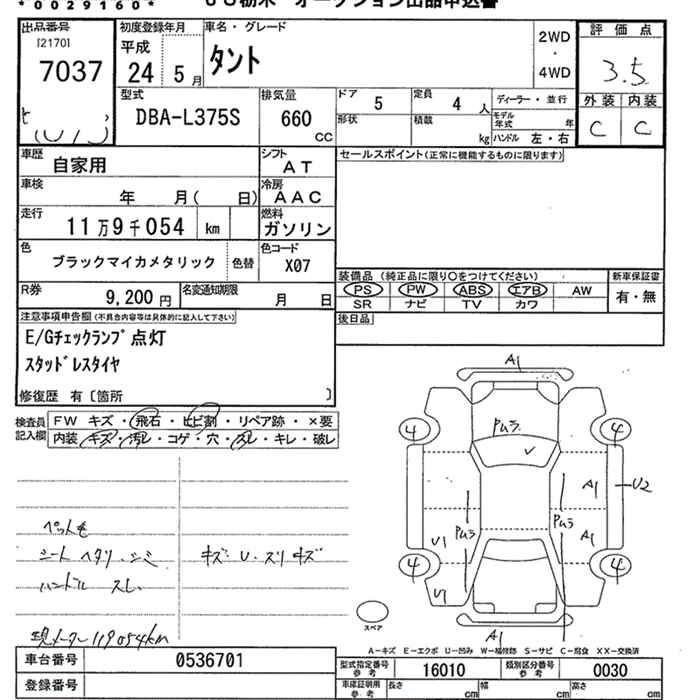 *0029160*
出品番号
[2170]
7037
初度登録年月
平成
24 5月
車名・グレード
タント
2WD
・
4WD
評価点
3.5
外装 内装
C C
型式
DBA-L375S
排気量
660
CC
ドア 5
定員 4 人
ディーラー・並行
形状
積数
kg
モデル年式 年
ハンドル 左・右
車歴
自家用
シフト
AT
セールスポイント(正常に機能するものに限ります)
車検
年 月( 日)
冷房
AAC
走行
11万9千054 km
燃料
ガソリン
色
ブラックマイカメタリック
色替
色コード
X07
装備品 (純正品に限り○をつけてください)
新車保証書
PS PW ABS エアB AW
有・無
SR ナビ TV カワ
R券
9,200円
名変通知期限
月 日
後日品
注意事項申告欄(不具合内容等は具体的に記入して下さい)
E/Gチェックランプ点灯
スタッドレスタイヤ
修復歴 有〔箇所 〕
検査員記入欄
FW キズ・飛石・ヒビ割・リペア跡・×要
内装・キズ・汚レ・コゲ・穴・スレ・キレ・破レ
ペット毛
シート ヘタリ・シミ
キズ・U・スリキズ
ハンドル スレ
現メーター119054km
A1
Pムラ
4
4
A1
U2
Pムラ
Pムラ
U1
A1
4
4
U1
A1
スペア
A-キズ E-エクボ U-凹み W-補修跡 S-サビ C-腐食 XX-交換済
車台番号
0536701
型式指定番号
参考
16010
類別区分番号
参考
0030
登録番号
車庫証明用
参考
長さ cm
幅 cm
高さ cm